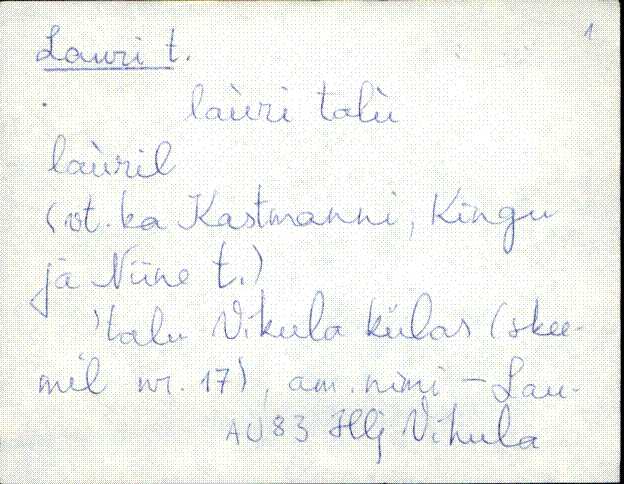 1
Lauri t.
laùri talù
laùril
(vt. ka Kastmanni, Kingu
ja Niine t.)
'talu Vihula külas (skee-
mil nr. 17), am. nimi – Lau-
AU83 Hlj Vihula